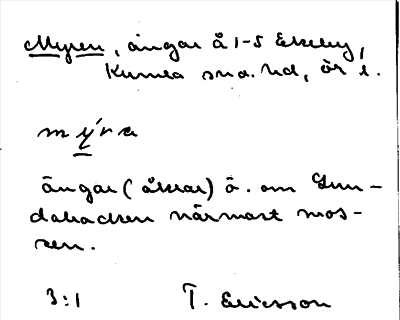 Myren, ängar å 1-5 Ekeby,
Kumla sn o. hd, ör l.
myra
ängar (åkrar) ö. om
dabacken närmast mos-
sen.
3:1 T. Ericsson